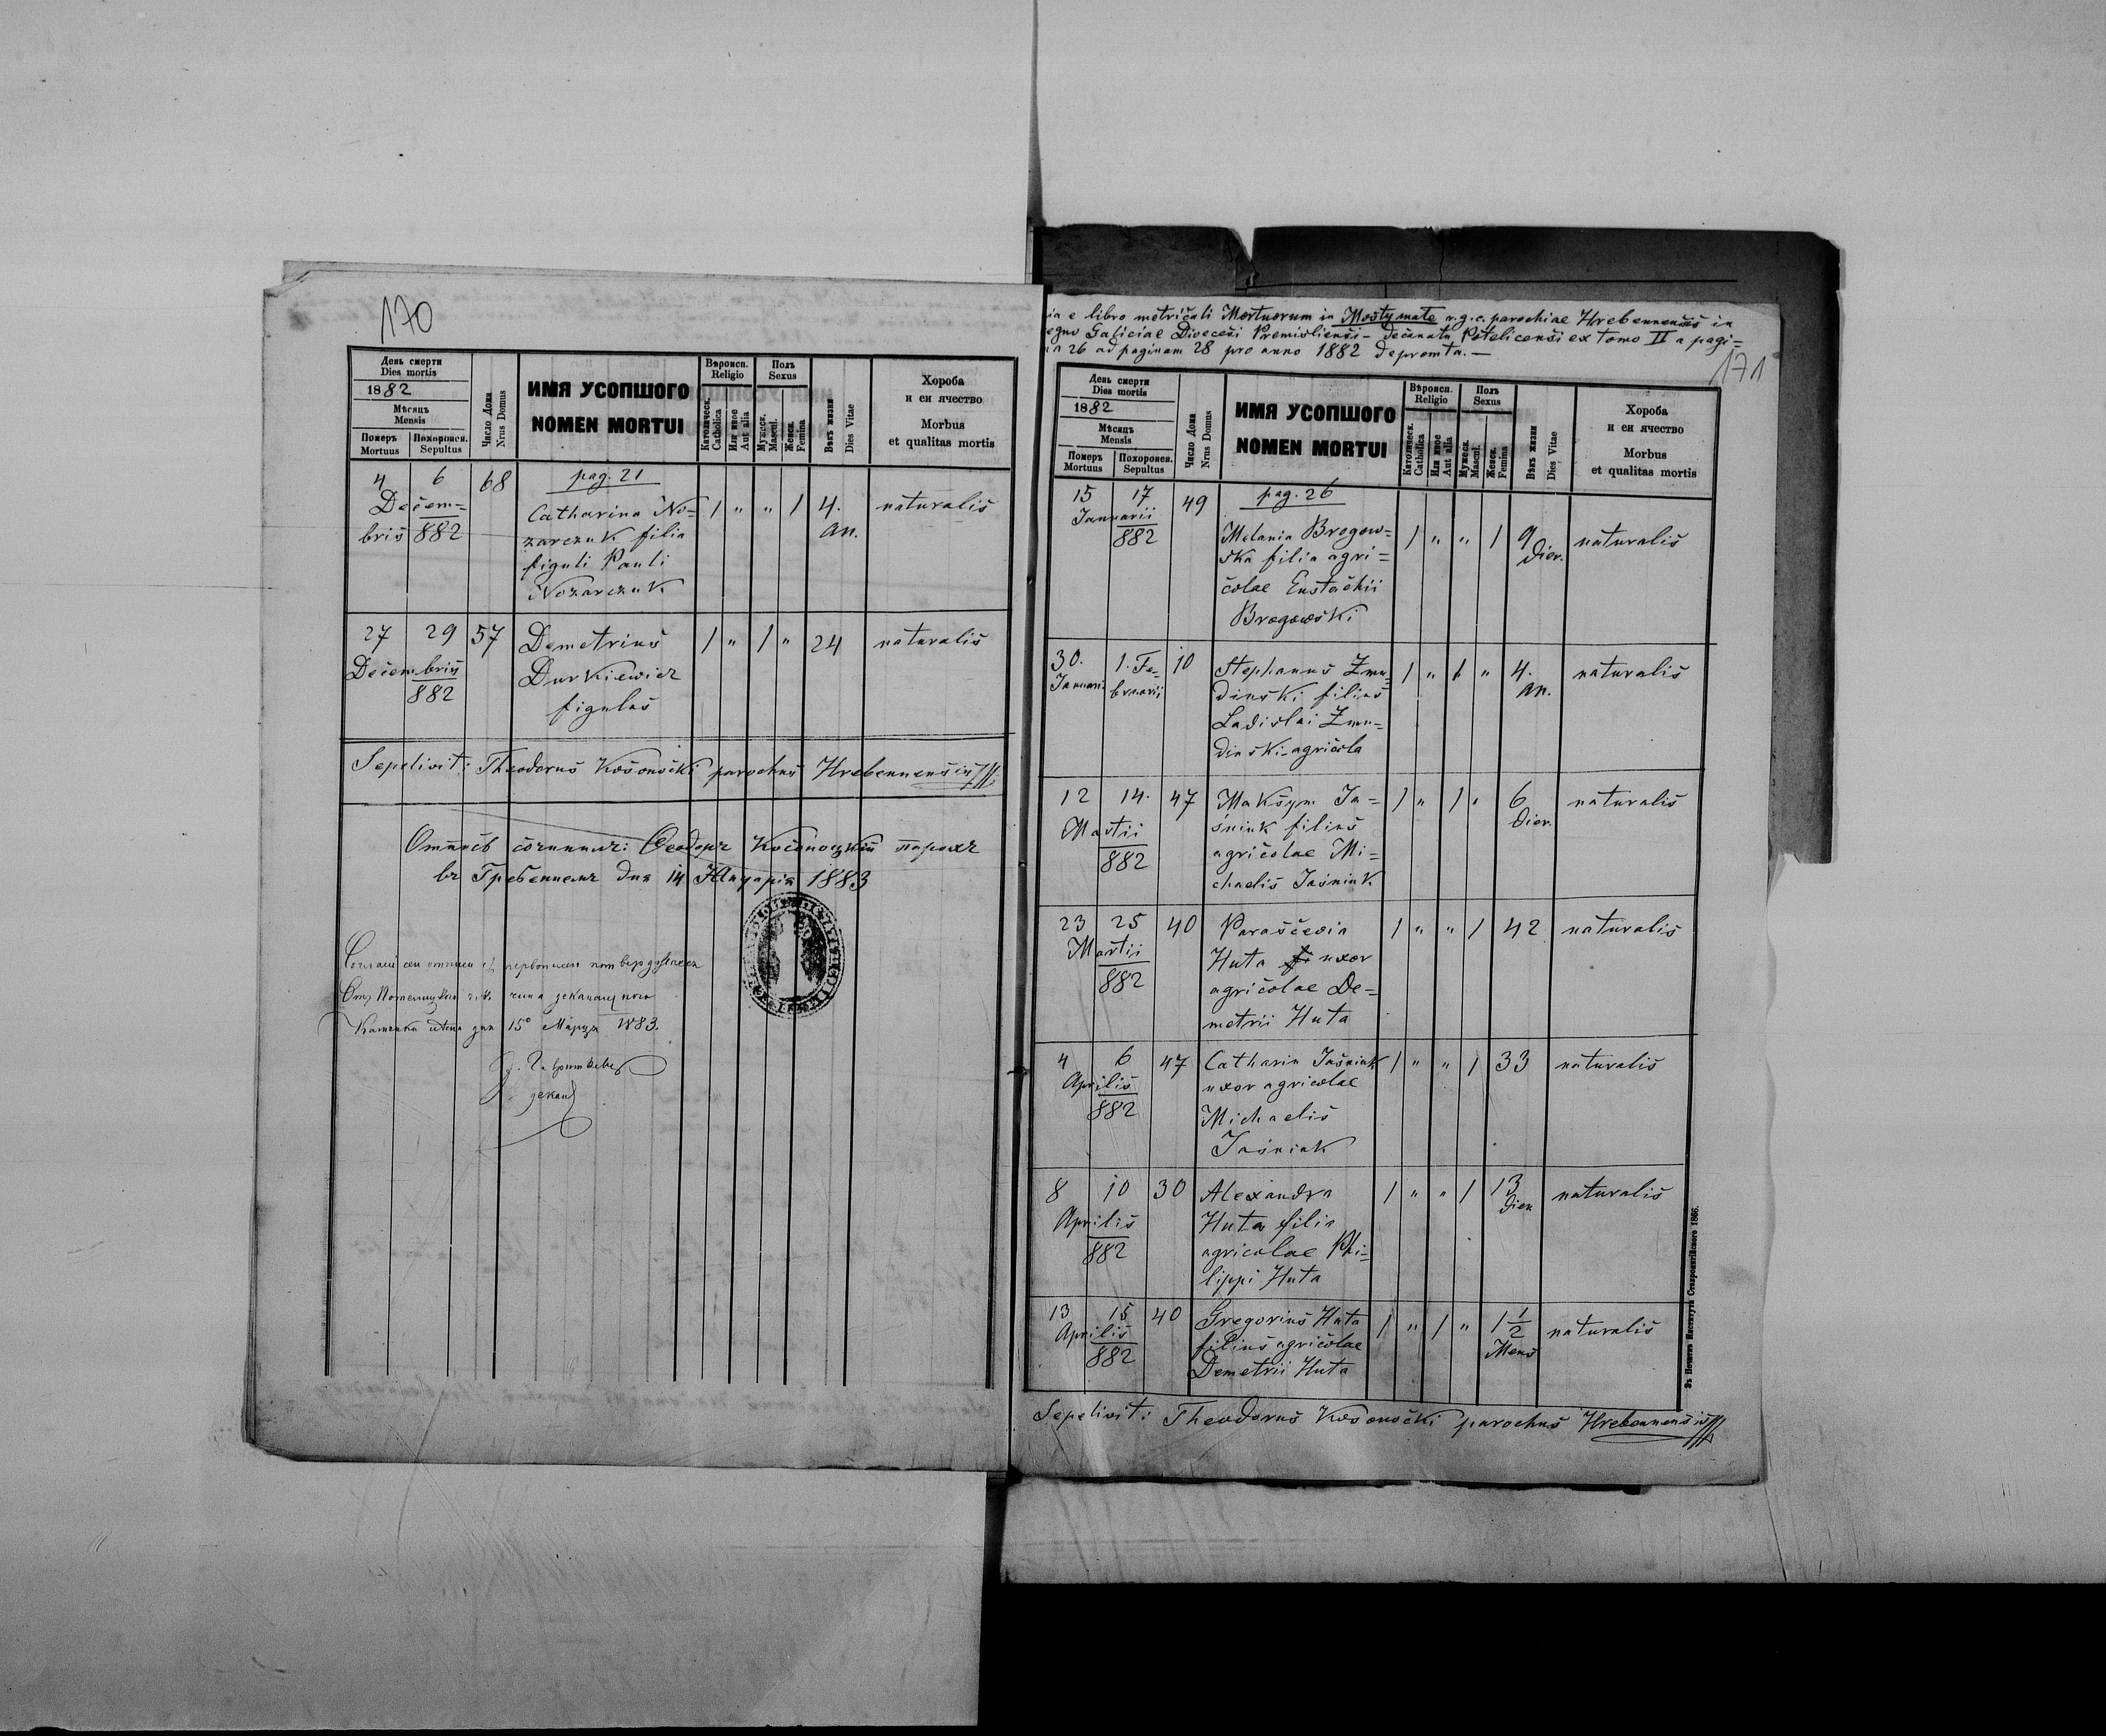 170
День смерти
Dies mortis
1882
Мѣсяць
Mensis
Померъ
Mortuus
Похоронен.
Sepultus
Число Дома
Nrus Domus
ИМЯ УСОПШОГО
NOMEN MORTUI
Вѣроисп.
Religio
Католическ.
Catholica
Или иное
Aut alia
Полъ
Sexus
Мужеск.
Mascul.
Женск.
Femina
Вѣкъ жизни
Dies Vitae
Хороба
и еи ячество
Morbus
et qualitas mortis
pag. 21
4 6 68 Catharina No= 1 " " 1 4. naturalis
Decem=
bris 882 zarczuk filia an.
figuli Pauli
Nozarczuk
27 29 57 Demetrius 1 " 1 " 24 naturalis
Decembris Durkiewicz
882 figulus
Sepelivit: Theodorus Kosonocki parochus Hrebennensis
Отписъ сочинилъ: Ѳеодоръ Косоноцкій парохъ
въ Гребенномъ дня 14 Януарія 1883
15° Марта 1883.
декан
ia e libro metricali Mortuorum in Mosty mate r.g.c. parochiae Hrebennensis in
egno Galiciae Dioecesi Premisliensi - Decanatu Potelicensi ex tomo II a pagi=
na 26 ad paginam 28 pro anno 1882 depromta. —
171
День смерти
Dies mortis
1882
Мѣсяць
Mensis
Померъ
Mortuus
Похоронен.
Sepultus
Число Дома
Nrus Domus
ИМЯ УСОПШОГО
NOMEN MORTUI
Вѣроисп.
Religio
Католическ.
Catholica
Или иное
Aut alia
Полъ
Sexus
Мужеск.
Mascul.
Женск.
Femina
Вѣкъ жизни
Dies Vitae
Хороба
и еи ячество
Morbus
et qualitas mortis
pag. 26
15 17 49 Melania Bregow= 1 " " 1 9 naturalis
Januarii ska filia agri= dier.
882 colae Eustachii
Bregowski
30. 1. Fe= 10 Stephanus Zmu= 1 " 1 " 4. naturalis
Januari bruarii dinski filius an.
Ladislai Zmu=
dinski agricola
12 14. 47 Maksym Ja= 1 " 1 " 6 naturalis
Martii śniuk filius dier.
882 agricolae Mi=
chaelis Jaśniuk
23 25 40 Parascevia 1 " " 1 42 naturalis
Martii Huta uxor
882 agricolae De=
metrii Huta
4 6 47 Catharin Jaśniuk 1 " " 1 33 naturalis
Aprilis uxor agricolae
882 Michaelis
Jaśniuk
8 10 30 Alexandra 1 " " 1 13 naturalis
Aprilis Huta filia dier
882 agricolae Phi=
lippi Huta
13 15 40 Gregorius Huta 1 " 1 " 1 1/2 naturalis
Aprilis filius agricolae Mens
882 Demetrii Huta
Sepelivit: Theodorus Kosonocki parochus Hrebennensis
Въ Печатнѣ Института Ставропигійского 1866.